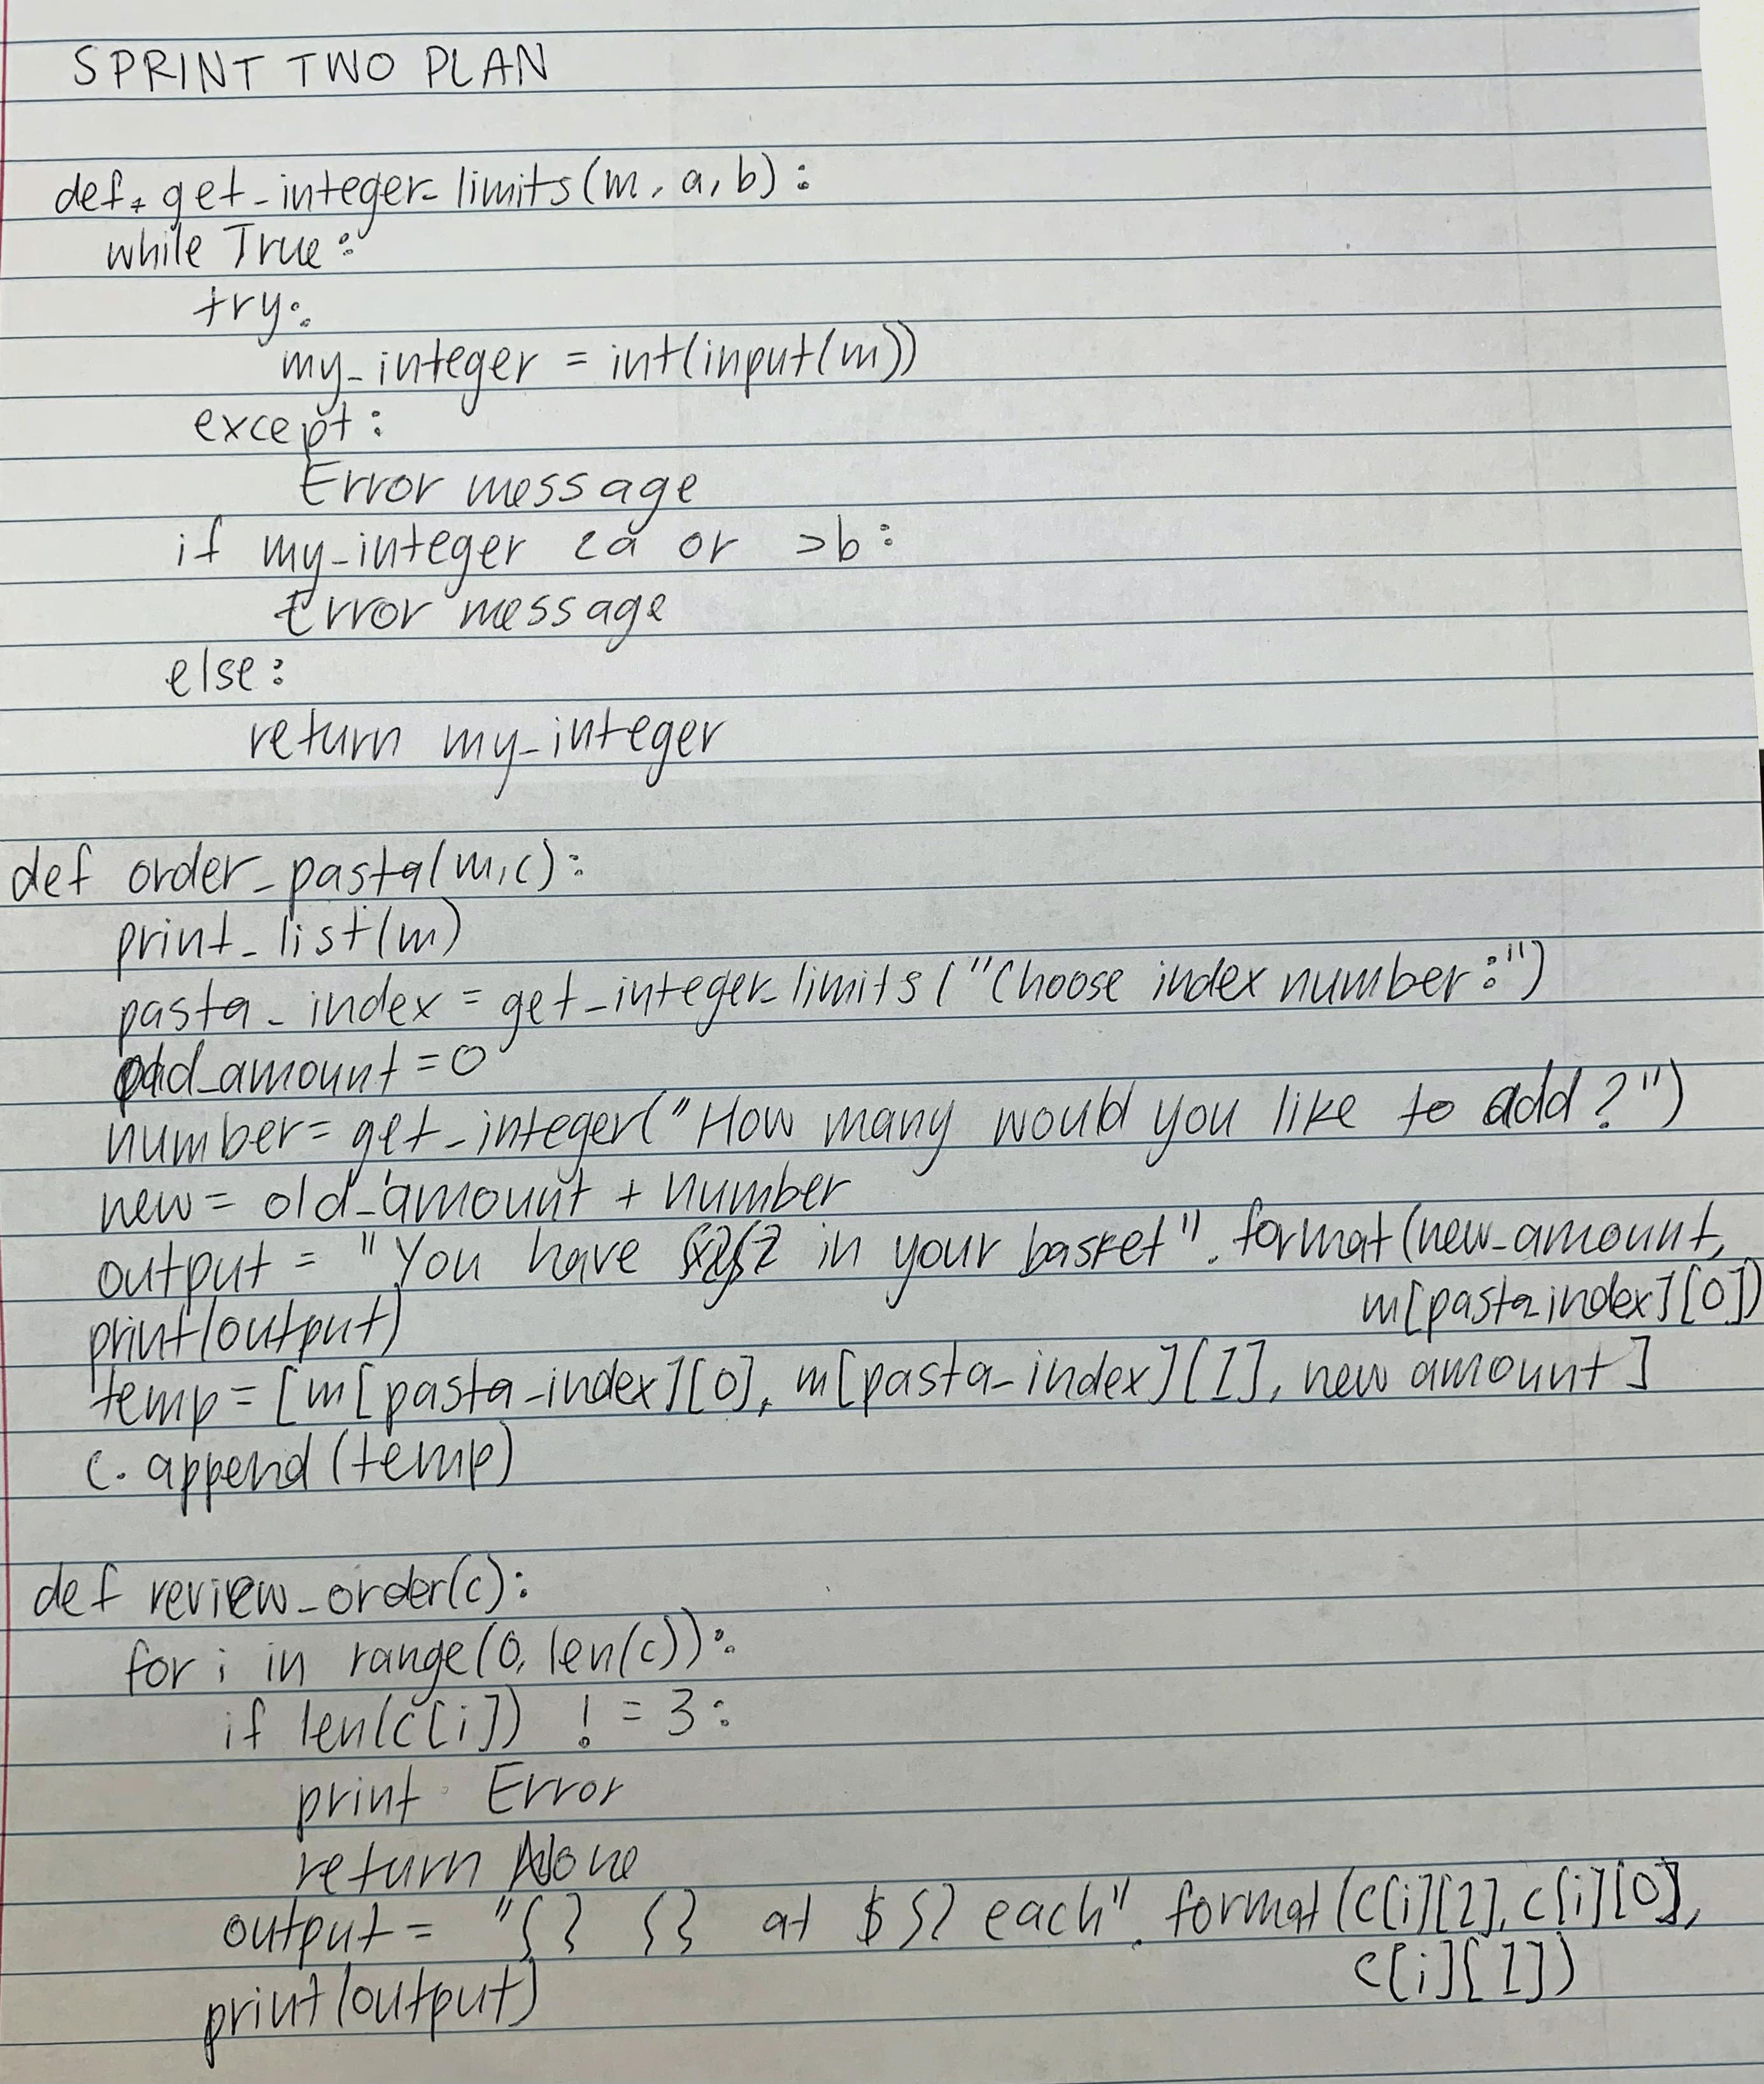 SPRINT TWO PLAN
def get_integer_limits(m, a, b):
while True:
try:
my_integer = int(input(m))
except:
Error message
if my_integer <a or >b:
Error message
else:
return my_integer
def order_pasta(m,c):
print_list(m)
pasta_index = get_integer_limits("Choose index number:")
old_amount = 0
number = get_integer("How many would you like to add?")
new = old_amount + number
output = "You have {}{} in your basket".format(new_amount,
m[pasta index][0])
print(output)
temp = [m[pasta_index][0], m[pasta_index][1], new amount]
c.append(temp)
def review_order(c):
for i in range(0, len(c)):
if len(c[i]) != 3:
print Error
return None
output = "{} {} at ${} each".format(c[i][2], c[i][0],
c[i][1])
print(output)